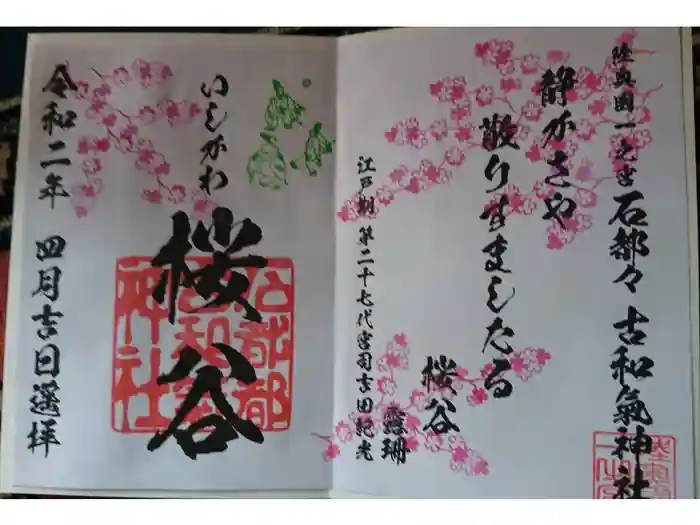 陸奥國一之宮 石都々古和氣神社
静かさや
散りすましたる
桜谷
霞珊
江戸期 第二十七代宮司吉田紀光
いしかわ
桜谷
石都都
古和氣
神社
令和二年 四月吉日遥拝